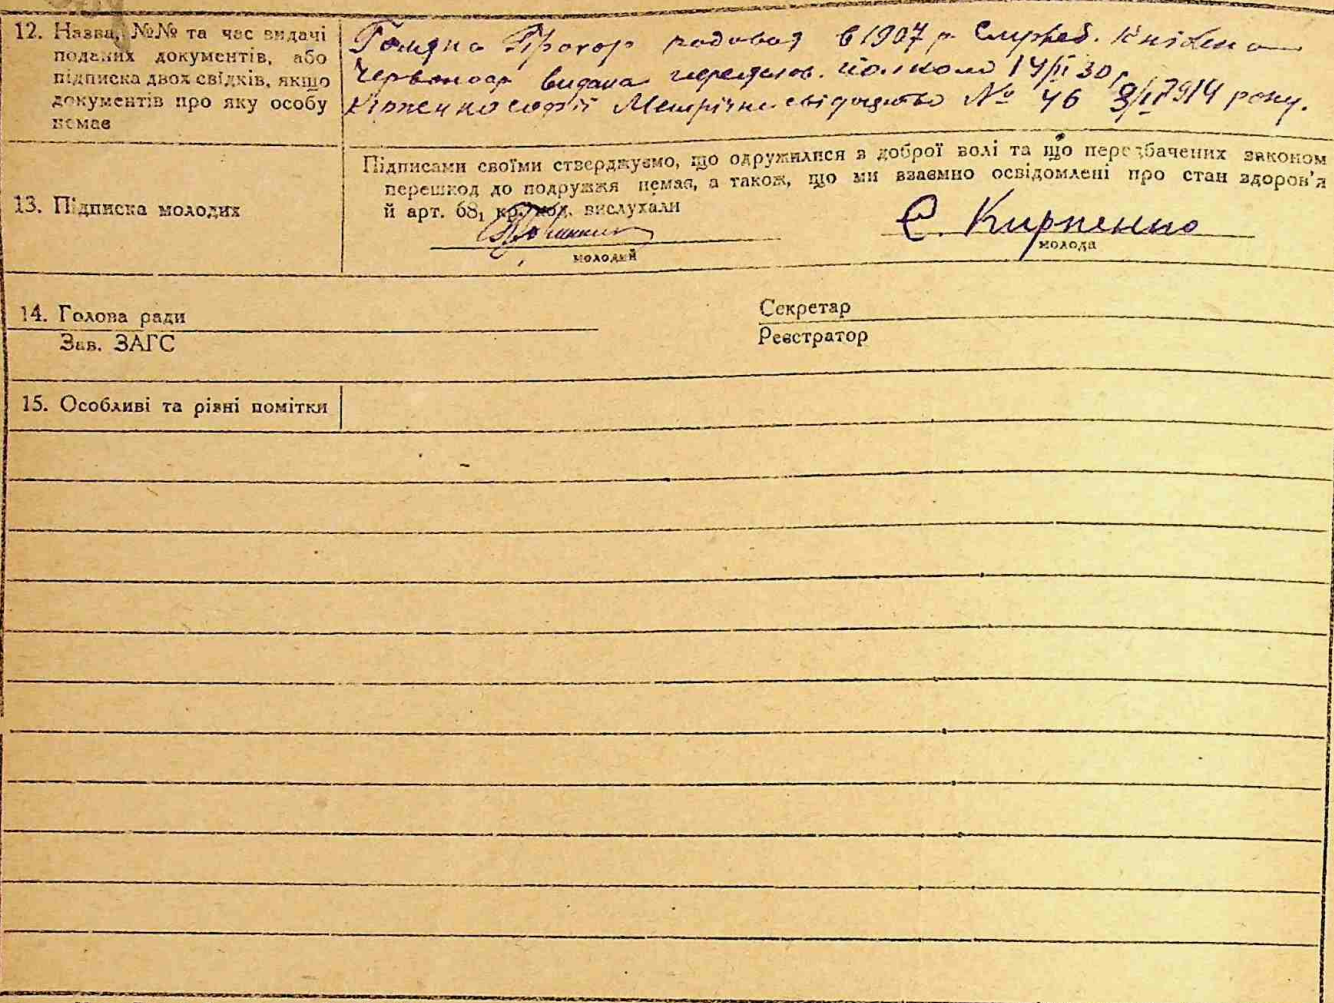 12. Назва, №№ та час видачі
поданих документів, або
підписка двох свідків, якщо
документів про яку особу
немає
Прохор в 1907 р
видана 14/II 30 р
Метрічне свідоцтво № 46 1914 року.
13. Підписка молодих
Підписами своїми стверджуємо, що одружилися з доброї волі та що передбачених законом
перешкод до подружжя немає, а також, що ми взаємно освідомлені про стан здоров'я
й арт. 68, кр. код. вислухали
Є. Кирпенко
молодий
молода
14. Голова ради
Зав. ЗАГС
Секретар
Реєстратор
15. Особливі та різні помітки